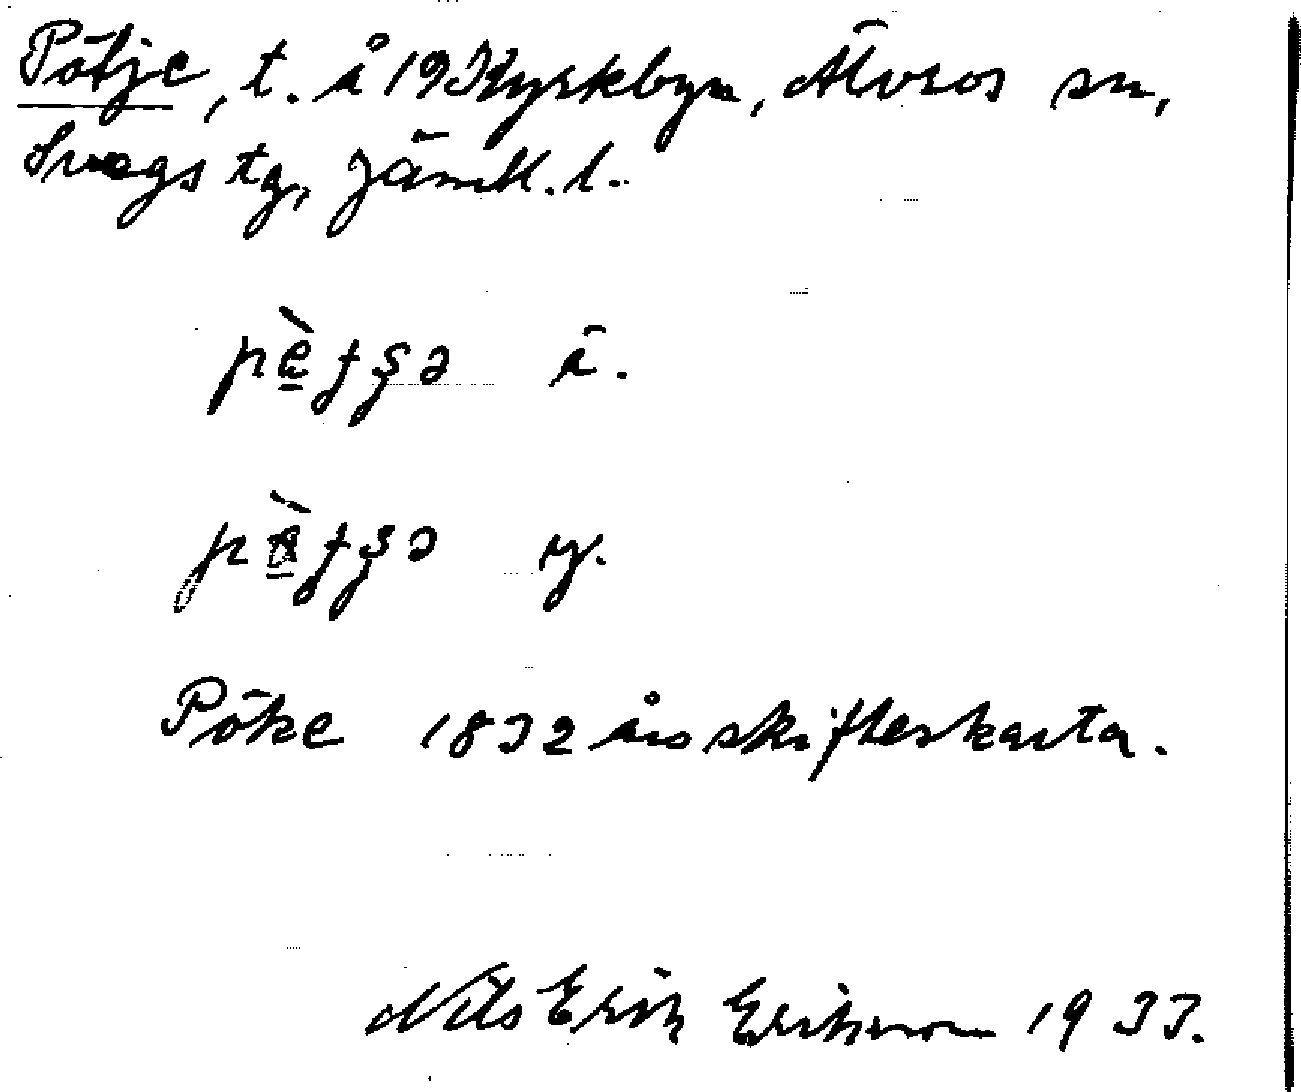 Pötje, t. å 19 Kyrkbyn, Älvros sn,
Svegs tg, Jämtl. l.
pè̱tʂə ä.
pè̱tʂə y.
Pöke 1832 års skifteskarta.
Nils Erik Eriksson 1933.